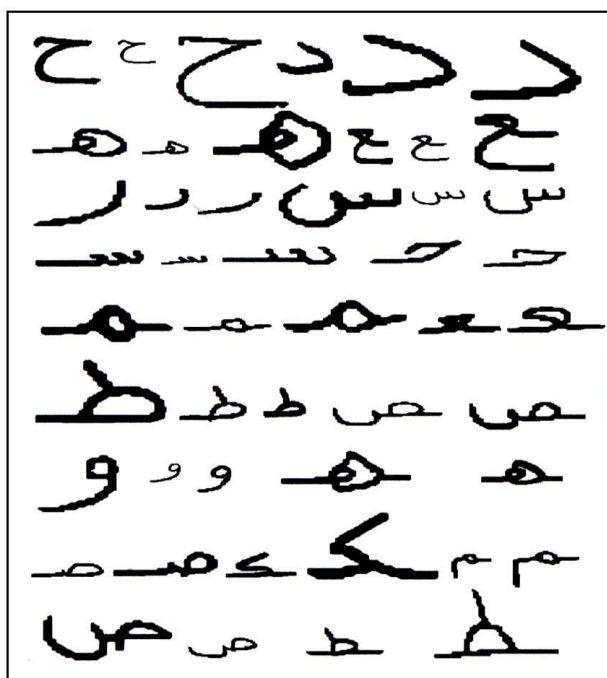 د د د ح ح ح
ع ع ع هـ هـ هـ
س س س ر ر ر
حـ حـ سـ سـ سـ
ـعـ ـعـ ـمـ ـمـ ـمـ
ـص ـص ط ط ط
ـهـ ـهـ و و و
ـم ـم كـ كـ صـ صـ
ـطـ ـطـ ص ص